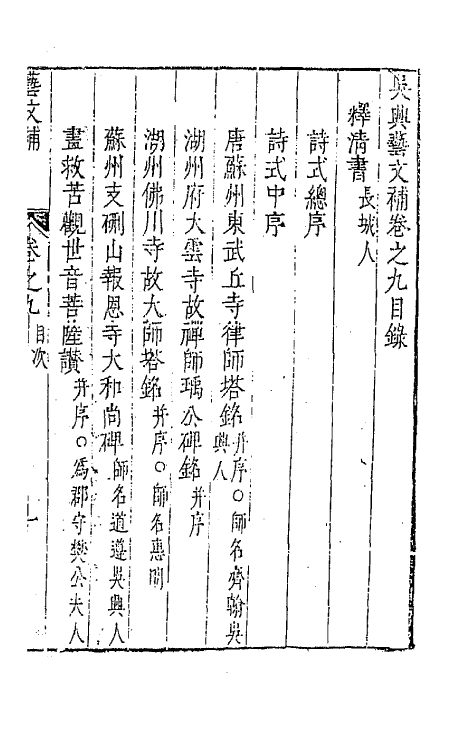 吳興藝文補卷之九目錄
釋清書長城人
詩式總序
詩式中序
唐蘇州東武丘寺律師塔銘并序○師名齊翰吳興人
湖州府大雲寺故禪師瑀公碑銘并序
湖州佛川寺故大師塔銘并序○師名惠明
蘇州支硎山報恩寺大和尚碑師名道遵吳興人
畫救苦觀世音菩薩讃并序○為郡守樊公夫人
藝文補
卷之九目次
一